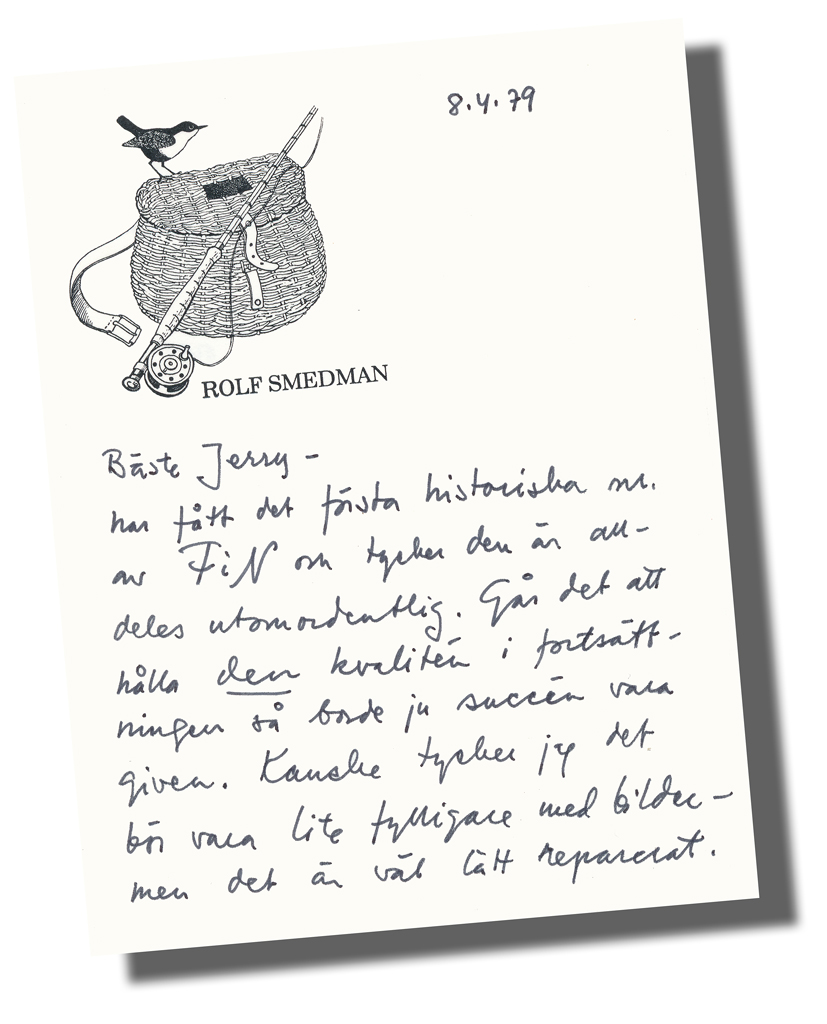 8.4.79
ROLF SMEDMAN
Bäste Jerry -
har fått det första historiska nr.
av FiN och tycker den är all-
deles utomordentlig. Går det att
hålla den kvalitén i fortsätt-
ningen så borde ju succén vara
given. Kanske tycker jag det
bör vara lite fylligare med bilder -
men det är väl lätt reparerat.